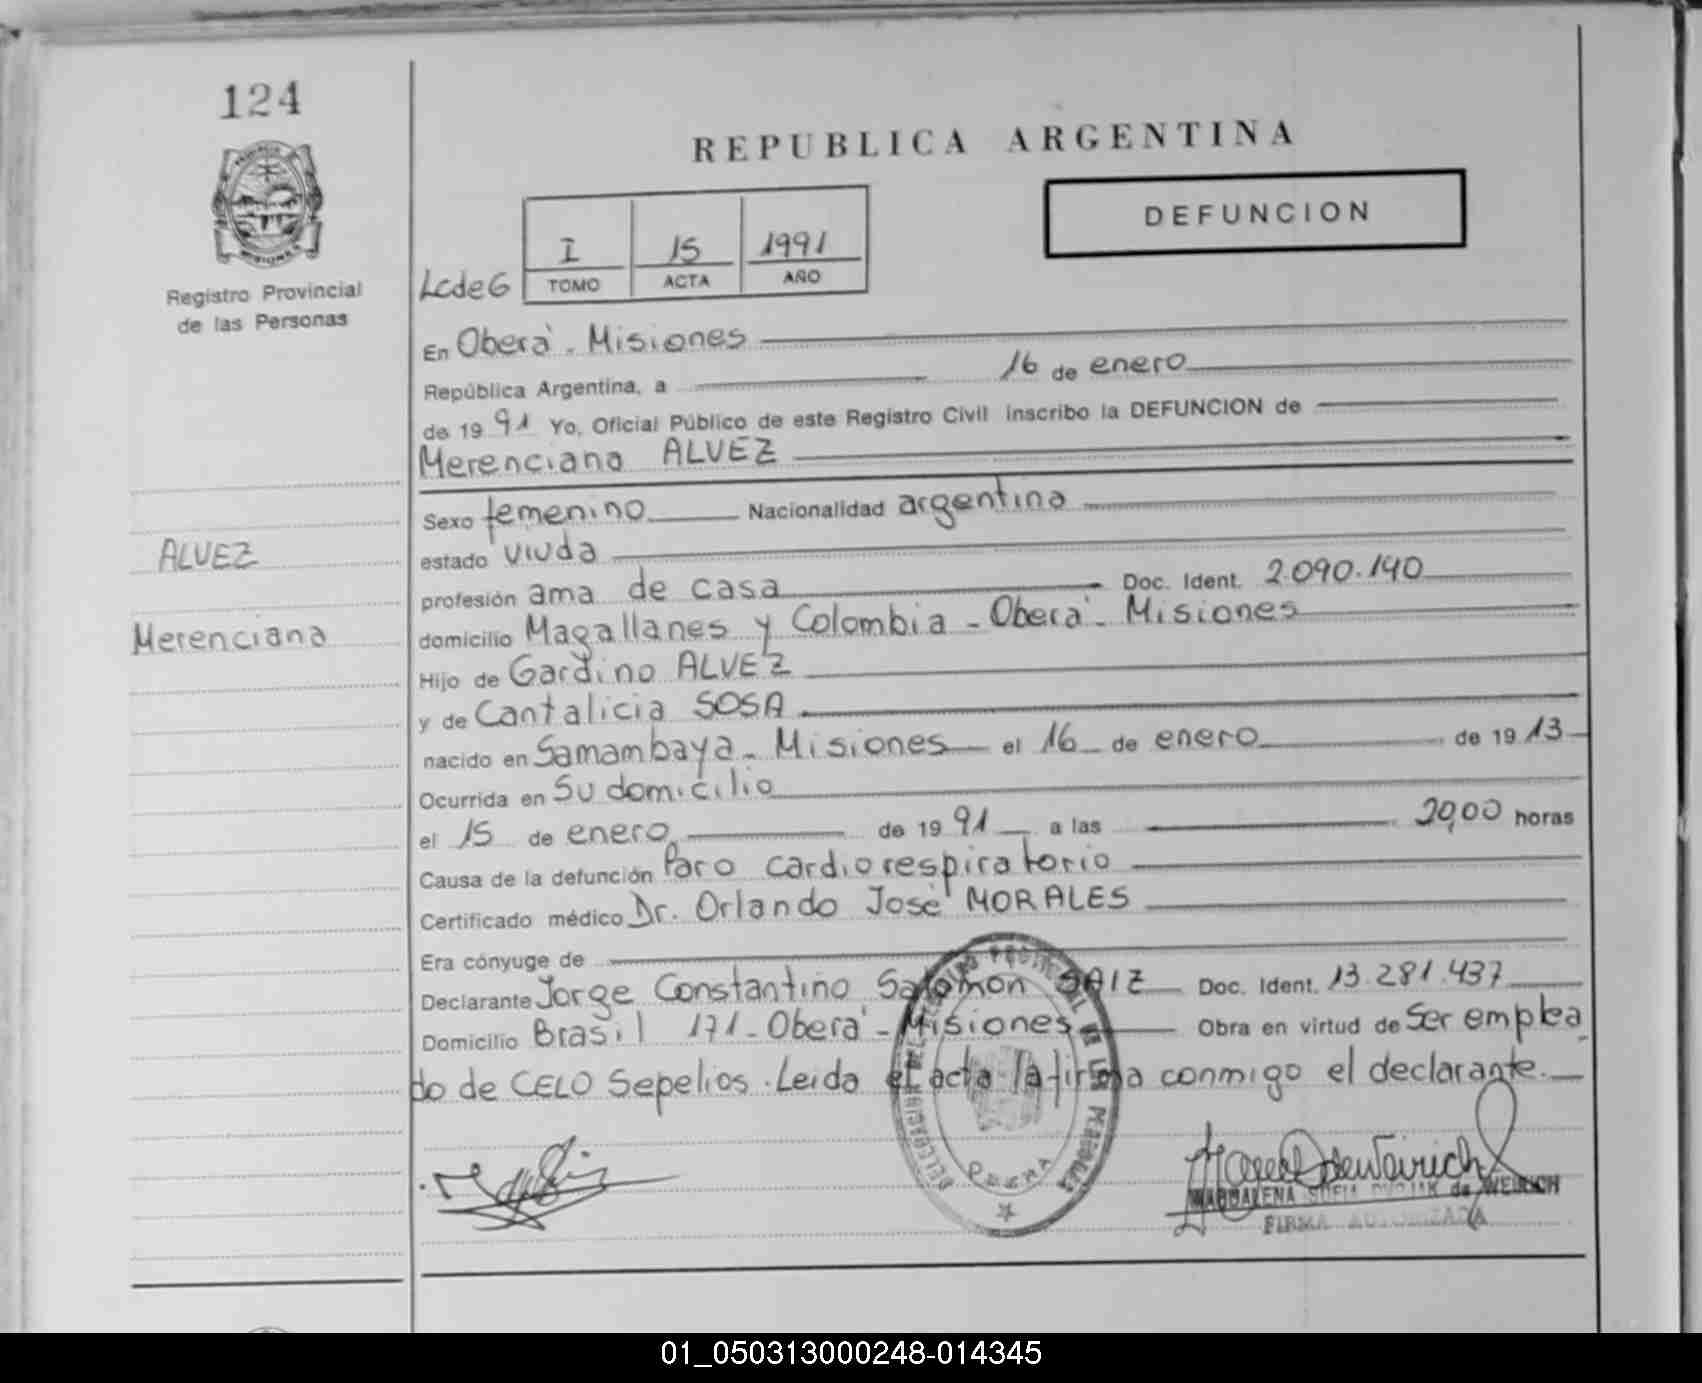 124
REPUBLICA ARGENTINA
DEFUNCION
Registro Provincial
de las Personas
LcdeG
I 15 1991
TOMO ACTA AÑO
En Oberá - Misiones
República Argentina, a 16 de enero
de 19 91 Yo, Oficial Público de este Registro Civil inscribo la DEFUNCION de
Merenciana ALVEZ
Sexo femenino Nacionalidad argentina
ALVEZ
estado viuda
profesión ama de casa Doc. Ident. 2.090.140
Merenciana
domicilio Magallanes y Colombia - Oberá - Misiones
Hijo de Gardino ALVEZ
y de Cantalicia SOSA
nacido en Samambaya - Misiones el 16 de enero de 19 13
Ocurrida en Su domicilio
el 15 de enero de 19 91 a las 20,00 horas
Causa de la defunción Paro cardiorespiratorio
Certificado médico Dr. Orlando José MORALES
Era cónyuge de
Declarante Jorge Constantino Salomón SAIZ Doc. Ident. 13.281.437
Domicilio Brasil 171 - Oberá - Misiones Obra en virtud de Ser emplea
do de CELO Sepelios. Leida el acta la firma conmigo el declarante.
MAGDALENA de WEIRICH
FIRMA AUTORIZADA
01_050313000248-014345